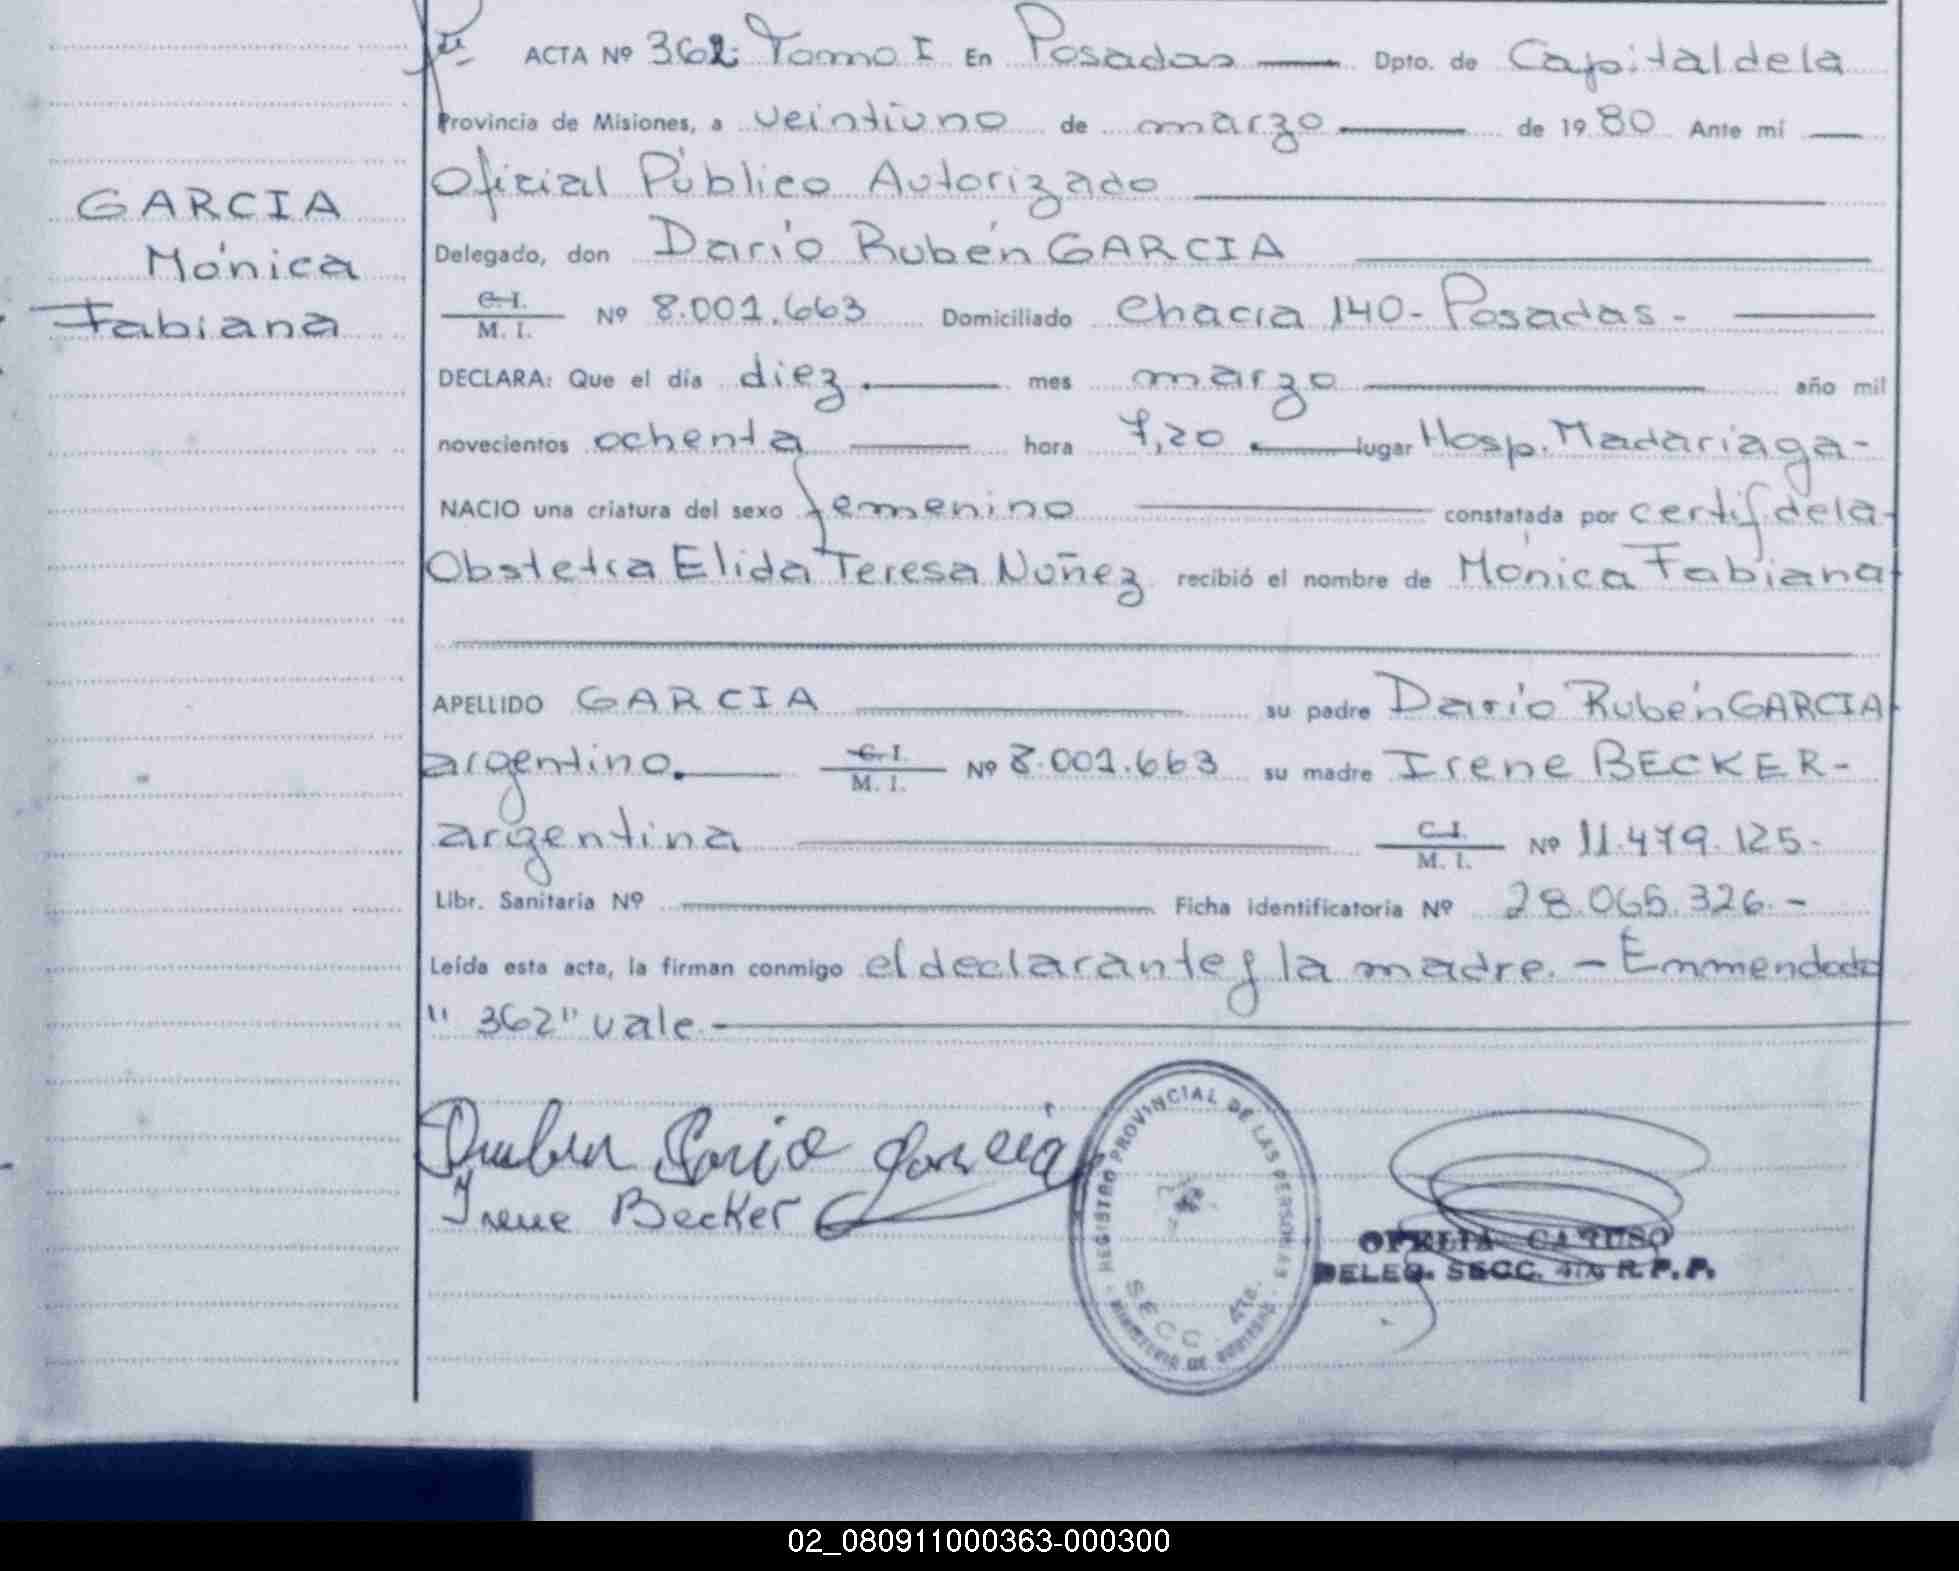 ACTA Nº 362 Tomo I En Posadas Dpto. de Capital de la
Provincia de Misiones, a veintiuno de marzo de 1980 Ante mí
Oficial Público Autorizado
GARCIA
Mónica
Fabiana
Delegado, don Darío Rubén GARCIA
C. I.
M. I. Nº 8.001.663 Domiciliado Chacra 140 - Posadas -
DECLARA: Que el día diez mes marzo año mil
novecientos ochenta hora 7,20 lugar Hosp. Madariaga -
NACIO una criatura del sexo femenino constatada por certif. de la
Obstetra Elida Teresa Nuñez recibió el nombre de Mónica Fabiana
APELLIDO GARCIA su padre Darío Rubén GARCIA
argentino. C. I.
M. I. Nº 8.001.663 su madre Irene BECKER -
argentina C. I.
M. I. Nº 11.479.125 -
Libr. Sanitaria Nº Ficha identificatoria Nº 28.065.326. -
Leída esta acta, la firman conmigo el declarante y la madre. - Emmendado
" 362 " vale. -
Ruben Dario Garcia
Irene Becker
REGISTRO PROVINCIAL DE LAS PERSONAS
SECC. 4ta.
MINISTERIO DE GOBIERNO
OFELIA CARUSO
DELEG. SECC. 4ta R. P. P.
02_080911000363-000300